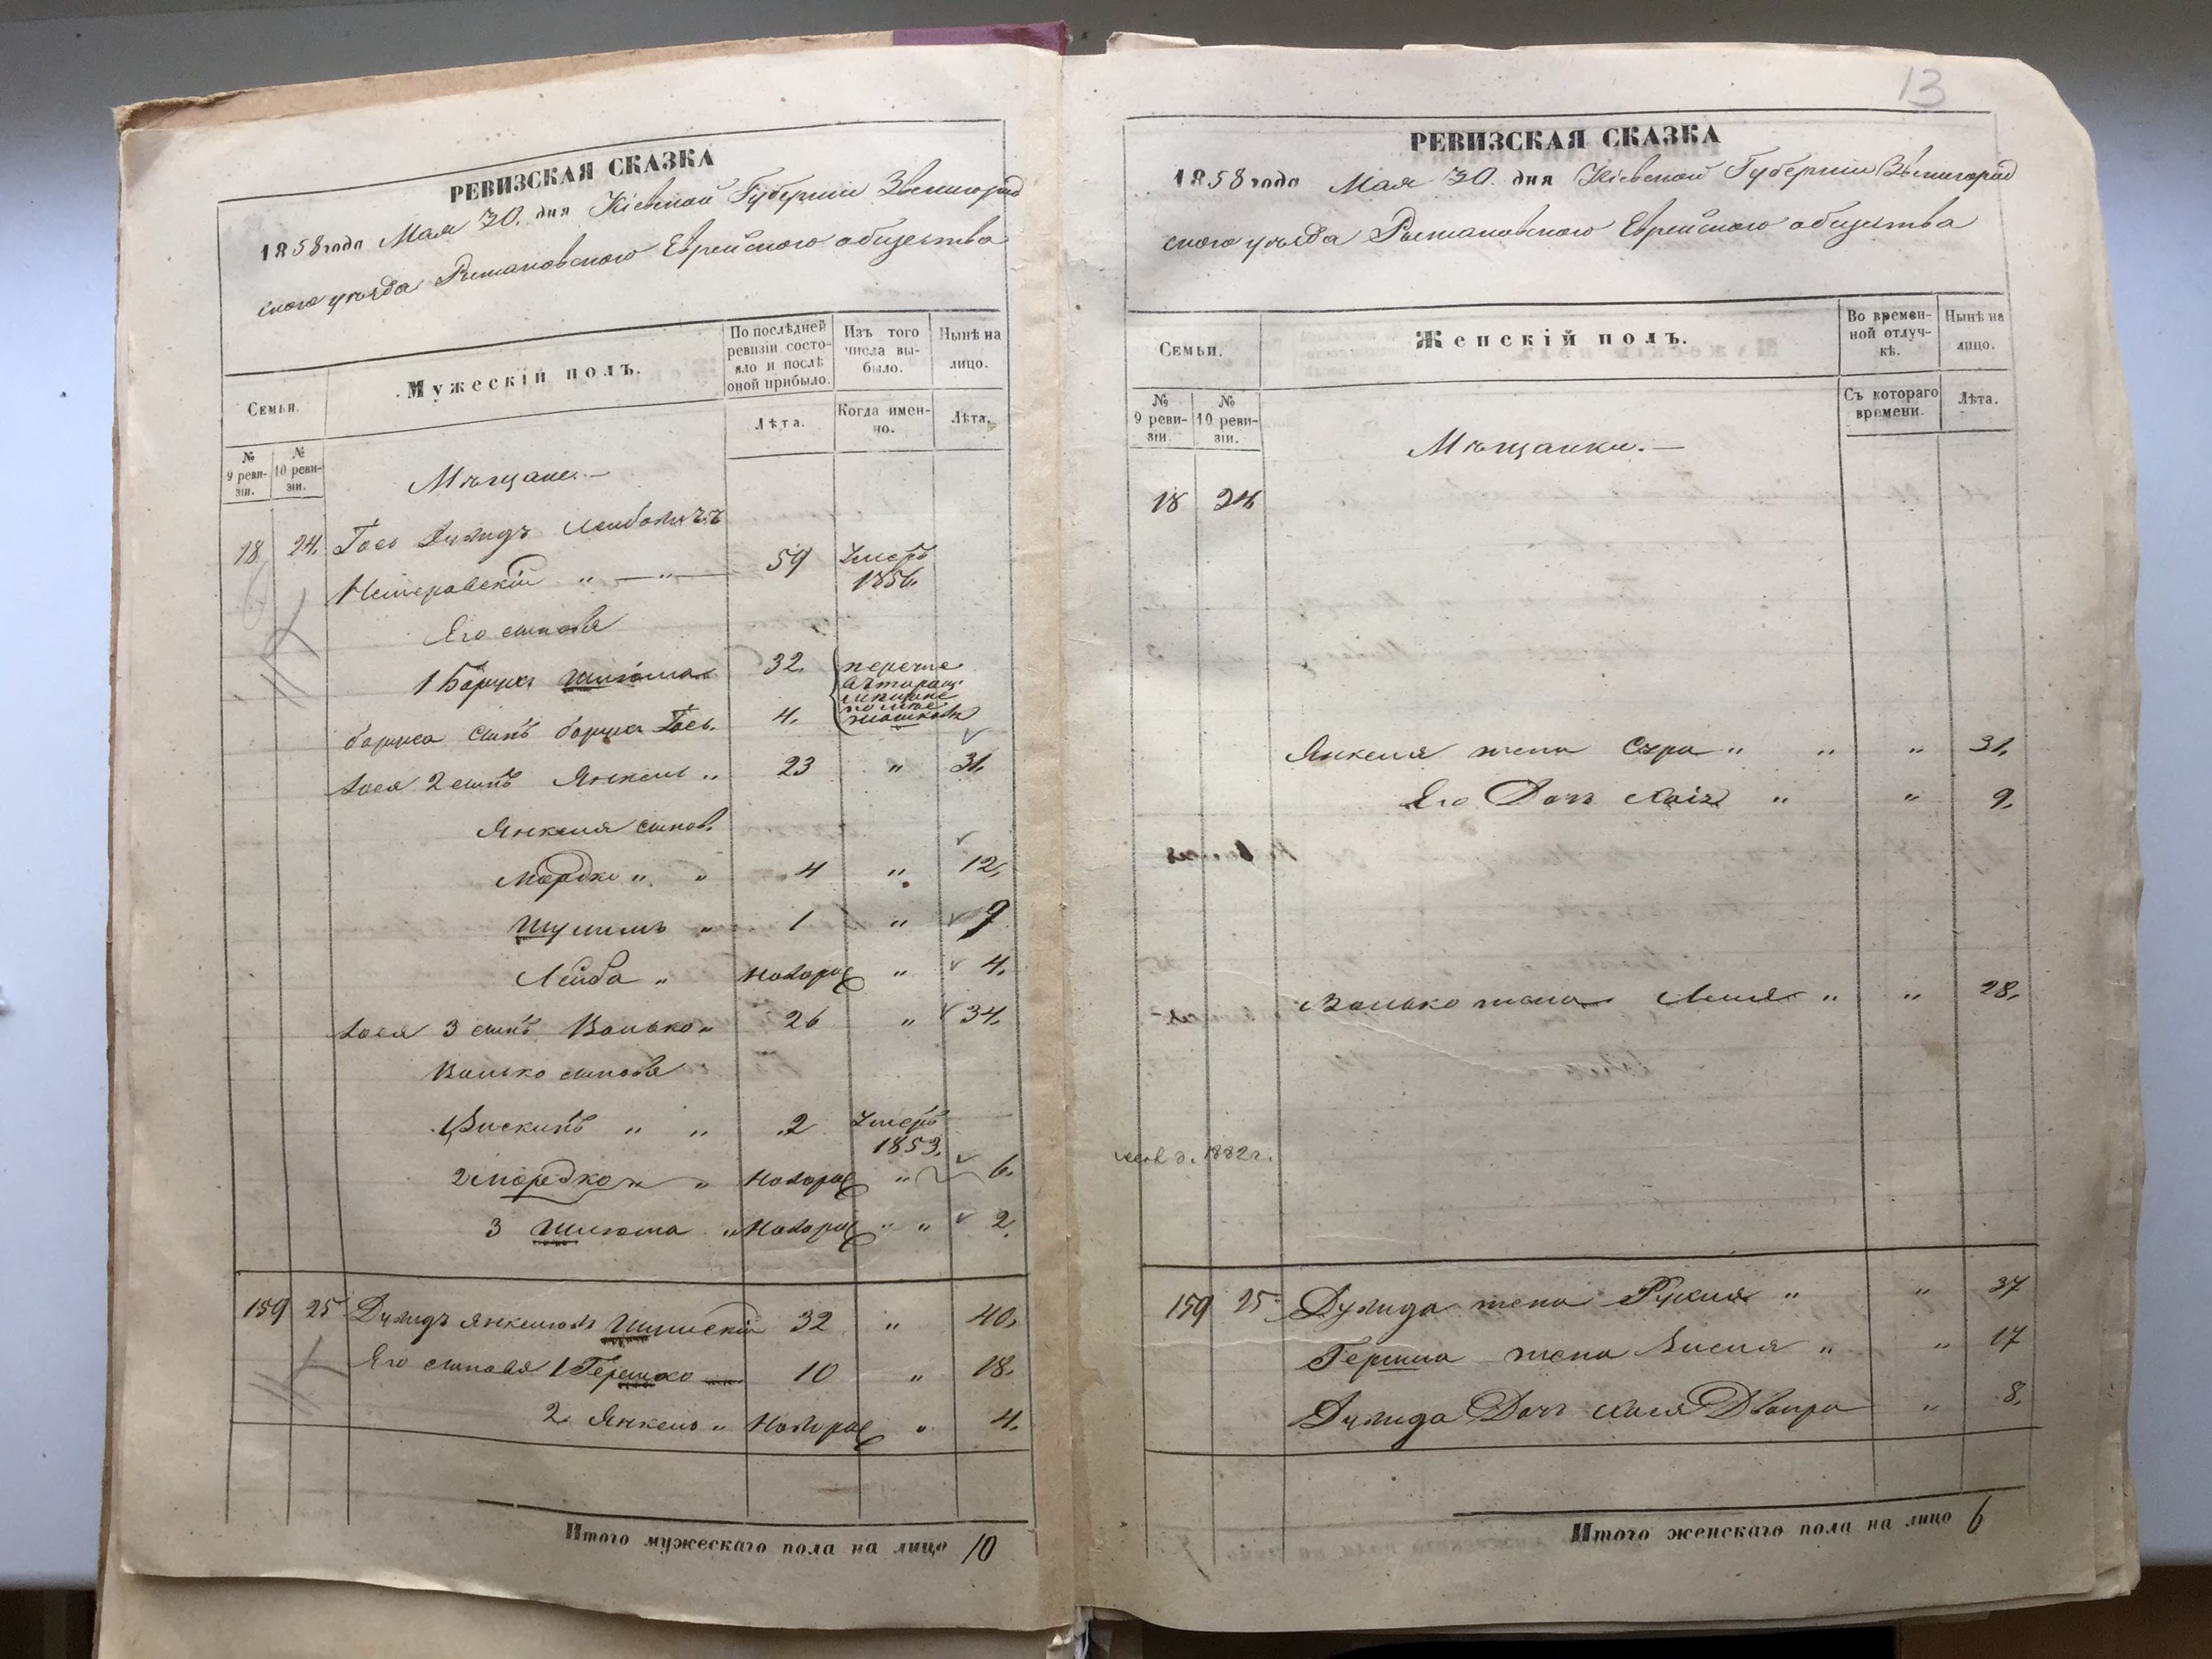 РЕВИЗСКАЯ СКАЗКА
1858 года Мая 30. дня Кіевской Губерніи Звенигород
скаго уѣзда Рыжановскаго Еврейскаго общества
Семьи.
Мужескій полъ.
По послѣдней ревизіи состояло и послѣ оной прибыло.
Изъ того числа выбыло.
Нынѣ на лицо.
Лѣта.
Когда именно.
Лѣта.
№ 9 ревизіи.
№ 10 ревизіи.
Мѣщане.—
18 24. Іось Дувидъ Лейбовичъ
59 Умеръ 1856.
Его сыновья
1 Борухъ 32.
Боруха сынъ Іось. 4.
Іося 2 сынъ Янкель " 23 " 31.
Янкеля сынов.
Мордко " " 4 " 12.
Шулимъ " 1 " 9
Лейба " новорож " 4.
Іося 3 сынъ Волько " 26 " 34.
Волько сыновья
1 " " 2 Умеръ 1853.
2 Мордко " " новорож " 6.
3 Шлиома " новорож " " 2.
159 25 Дувидъ Янкелев 32 " 40.
Его сыновья 1 Гершко 10 " 18.
2. Янкель " новорож " 4.
Итого мужескаго пола на лицо 10
13
РЕВИЗСКАЯ СКАЗКА
1858 года Мая 30. дня Кіевской Губерніи Звенигород
скаго уѣзда Рыжановскаго Еврейскаго общества
Семьи.
Женскій полъ.
Во временной отлучкѣ.
Нынѣ на лицо.
№ 9 ревизіи.
№ 10 ревизіи.
Съ котораго времени.
Лѣта.
Мѣщанки.—
18 24
Янкеля жена Сура " " " 31.
Его Дочь " " 9.
Волько жена " " 28.
1882 г.
159 25. Дувида жена " " 37
Гершка жена " " 17
Дувида Дочь Хася Двойра " 8.
Итого женскаго пола на лицо 6